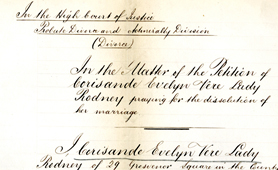 In the High Court of Justice
Probate Divorce and Admiralty Division
(Divorce)
In the Matter of the Petition of
Corisande Evelyn Vere Lady
Rodney praying for the dissolution of
her marriage
I Corisande Evelyn Vere Lady
Rodney of 29 Grosvenor Square in the County